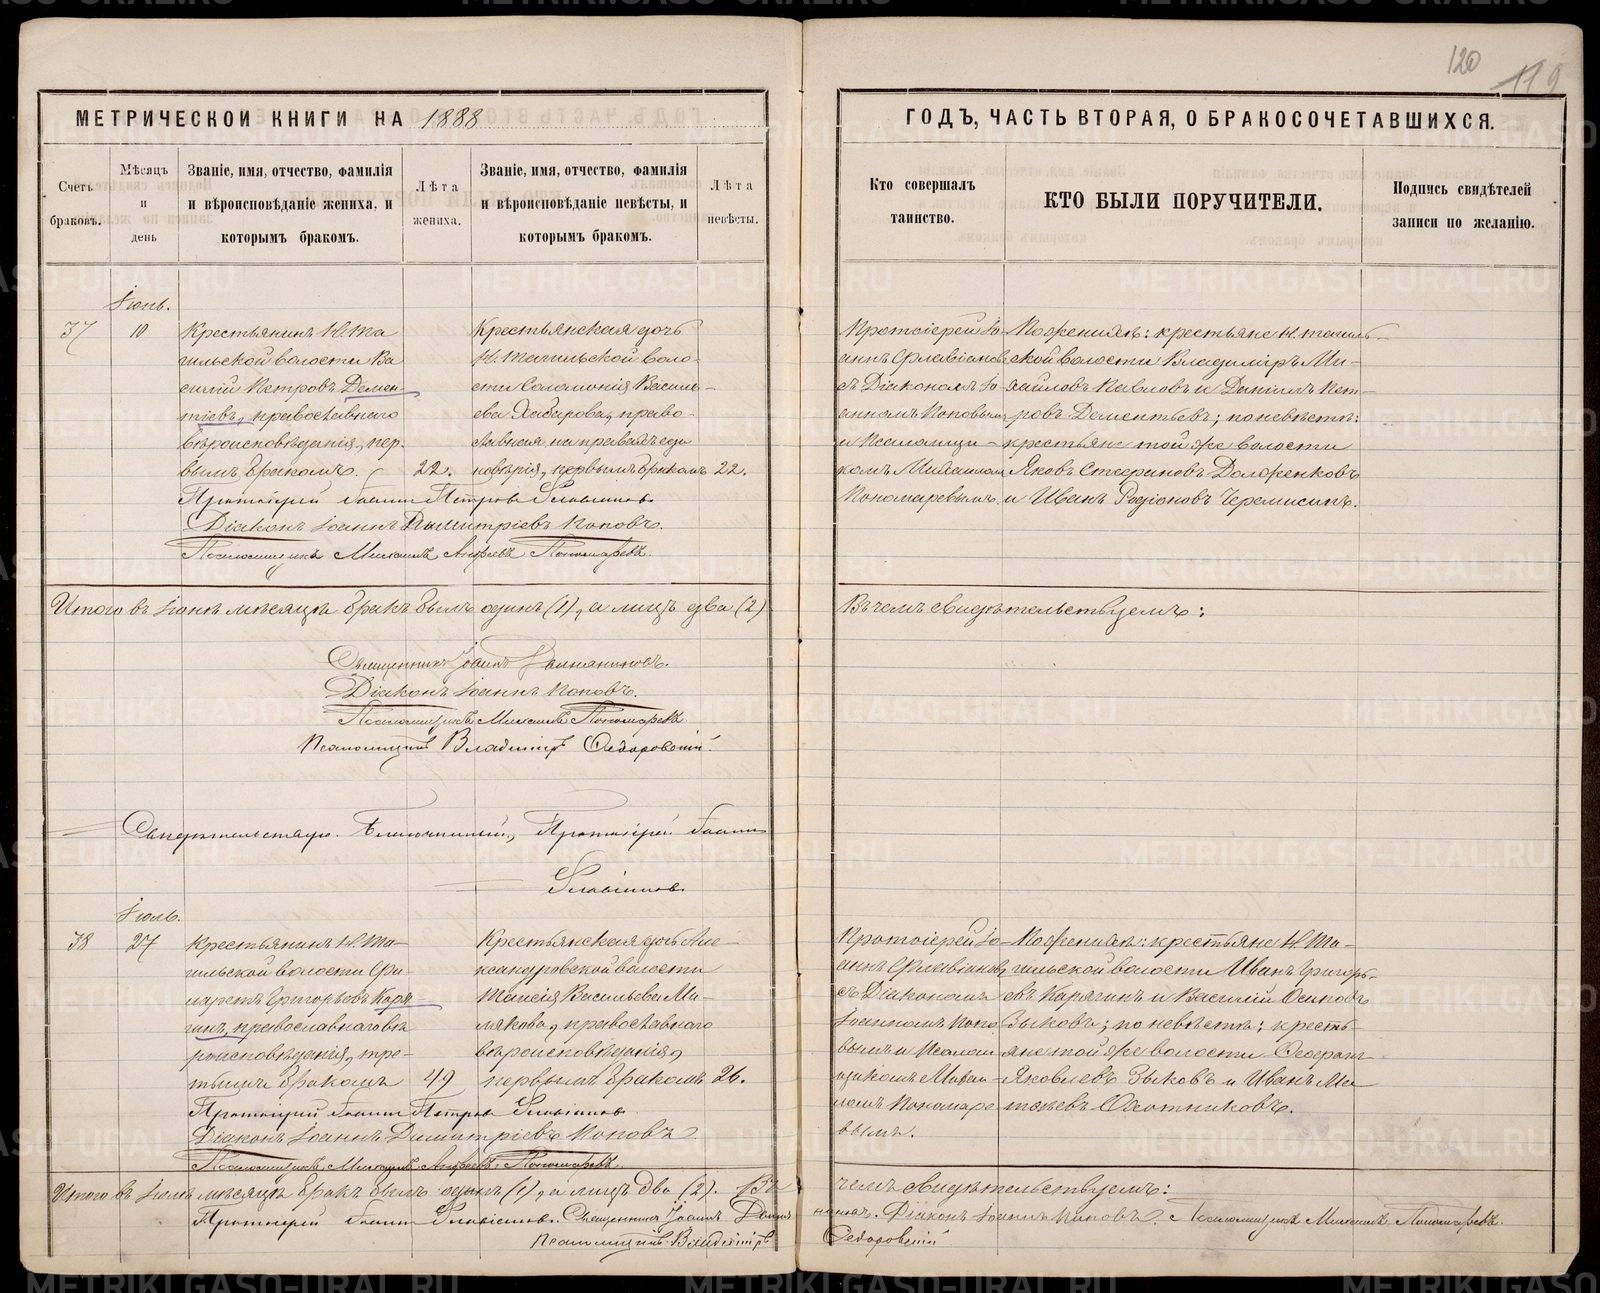 120
119
МЕТРИЧЕСКОЙ КНИГИ НА 1888
ГОДЪ, ЧАСТЬ ВТОРАЯ, О БРАКОСОЧЕТАВШИХСЯ.
Счетъ браковъ.
Мѣсяцъ и день
Званіе, имя, отчество, фамилія
и вѣроисповѣданіе жениха, и
которымъ бракомъ.
Лѣта жениха.
Званіе, имя, отчество, фамилія
и вѣроисповѣданіе невѣсты, и
которымъ бракомъ.
Лѣта невѣсты.
Кто совершалъ
таинство.
КТО БЫЛИ ПОРУЧИТЕЛИ.
Подпись свидѣтелей
записи по желанію.
Іюнь.
37
10
Крестьянинъ Н. Та
гильской волости Ва
силій Петровъ Демен-
тіевъ, православнаго
вѣроисповѣданія, пер.
вымъ бракомъ.
22.
Крестьянская дочь
Н. Тагильской воло-
сти Соломонія Василь-
ева Хабарова, право-
славная на правахъ еди
новѣрія, первымъ бракомъ
22.
Протоіерей Іо-
аннъ Флавіановъ
съ Діакономъ Іо-
анномъ Поповымъ
и Псаломщи-
комъ Михаиломъ
Пономаревымъ.
По женихѣ: крестьяне Н. Тагиль-
ской волости Владиміръ Ми-
хайловъ Павловъ и Даніилъ Пет-
ровъ Дементьевъ; по невѣстѣ:
крестьяне той же волости
Яковъ Стефановъ Долженковъ
и Иванъ Родіоновъ Черемисинъ.
Протоіерей Іоаннъ Петровъ Флавіановъ
Діаконъ Іоаннъ Димитріевъ Поповъ.
Псаломщикъ Михаилъ Андреевъ Пономаревъ.
Итого въ Іюнѣ мѣсяцѣ бракъ былъ одинъ (1), а лицъ два (2)
Въ чемъ свидѣтельствуемъ:
Священникъ Іоаннъ
Діаконъ Іоаннъ Поповъ.
Псаломщикъ Михаилъ Пономаревъ.
Псаломщикъ Владиміръ Сѣдоровскій.
Свидѣтельствую. Благочинный, Протоіерей Іоаннъ
Флавіановъ
Іюль.
38
27
Крестьянинъ Н. Та-
гильской волости Фи-
ларетъ Григорьевъ Каря
гинъ, православнаго вѣ
роисповѣданія, тре-
тьимъ бракомъ
49
Крестьянская дочь Але-
ксандровской волости
Таисія Васильева Ма-
лякова, православнаго
вѣроисповѣданія,
первымъ бракомъ
26.
Протоіерей Іо-
аннъ Флавіановъ
съ Діакономъ
Іоанномъ Попо
вымъ и Псалом
щикомъ Михаи-
ломъ Пономаре
вымъ.
По женихѣ: крестьяне Н. Та-
гильской волости Иванъ Григорь-
евъ Карягинъ и Василій Осиповъ
Зыковъ; по невѣстѣ: кресть-
яне той же волости Ѳеофанъ
Яковлевъ Зыковъ и Иванъ Ма
твѣевъ Охотниковъ.
Протоіерей Іоаннъ Петровъ Флавіановъ
Діаконъ Іоаннъ Димитріевъ Поповъ
Псаломщикъ Михаилъ Андреевъ Пономаревъ
Итого въ Іюлѣ мѣсяцѣ бракъ былъ одинъ (1), а лицъ два (2). Въ
чемъ свидѣтельствуемъ:
Протоіерей Іоаннъ Флавіановъ. Священникъ Іоаннъ
Діаконъ Іоаннъ Поповъ. Псаломщикъ Михаилъ Пономаревъ.
Псаломщикъ Владиміръ
Сѣдоровскій
METRIKI.GASO-URAL.RU